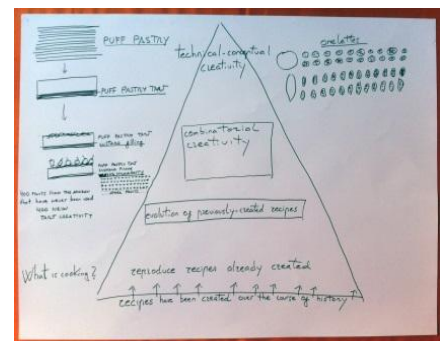 PUFF PASTRY
PUFF PASTRY TART
PUFF PASTRY TART
custard filling
PUFF PASTRY TART
400 FRUITS FROM THE AMAZON
that have never been used
400 NEW
TART CREATIVITY
technical-conceptual
creativity
omelettes
combinatorial
creativity
evolution of previously-created recipes
What is cooking?
reproduce recipes already created
recipes have been created over the course of history